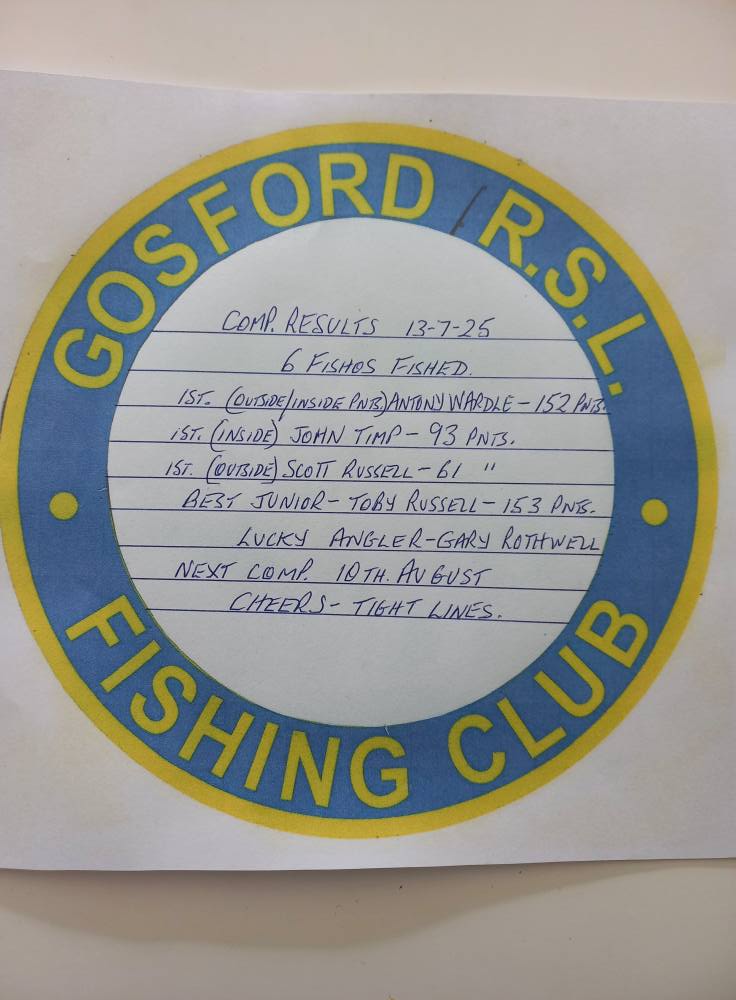 GOSFORD R.S.L.
COMP. RESULTS 13-7-25
6 FISHOS FISHED.
1ST. (OUTSIDE/INSIDE PNTS.) ANTONY WARDLE - 152 PNTS.
1ST. (INSIDE) JOHN TIMP - 93 PNTS.
1ST. (OUTSIDE) SCOTT RUSSELL - 61 "
BEST JUNIOR - TOBY RUSSELL - 153 PNTS.
LUCKY ANGLER - GARY ROTHWELL
NEXT COMP. 10TH. AUGUST
CHEERS - TIGHT LINES.
FISHING CLUB